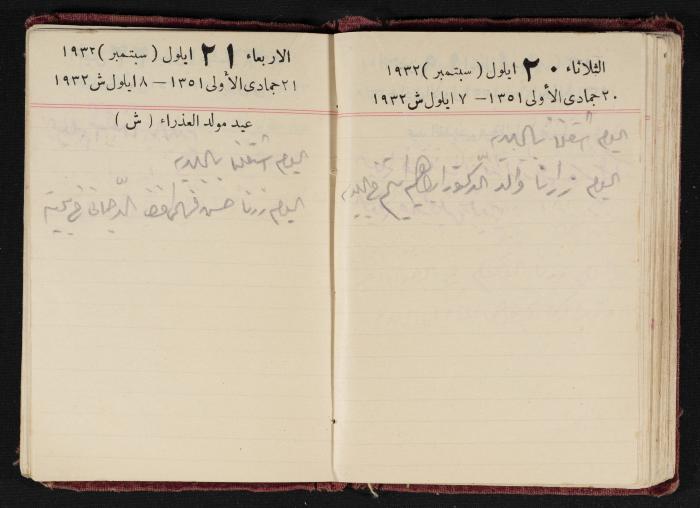 الثلاثاء ٢٠ ايلول ( سبتمبر ) ١٩٣٢
٢٠ جمادى الأولى ١٣٥١ – ٧ ايلول ش ١٩٣٢
اليوم اشتغلنا بالبلديه
اليوم زارنا والد الدكتور ابراهيم
الاربعاء ٢١ ايلول ( سبتمبر ) ١٩٣٢
٢١ جمادى الأولى ١٣٥١ – ٨ ايلول ش ١٩٣٢
عيد مولد العذراء ( ش )
اليوم اشتغلنا بالبلديه
اليوم زرنا حسن الدجاني في بيته